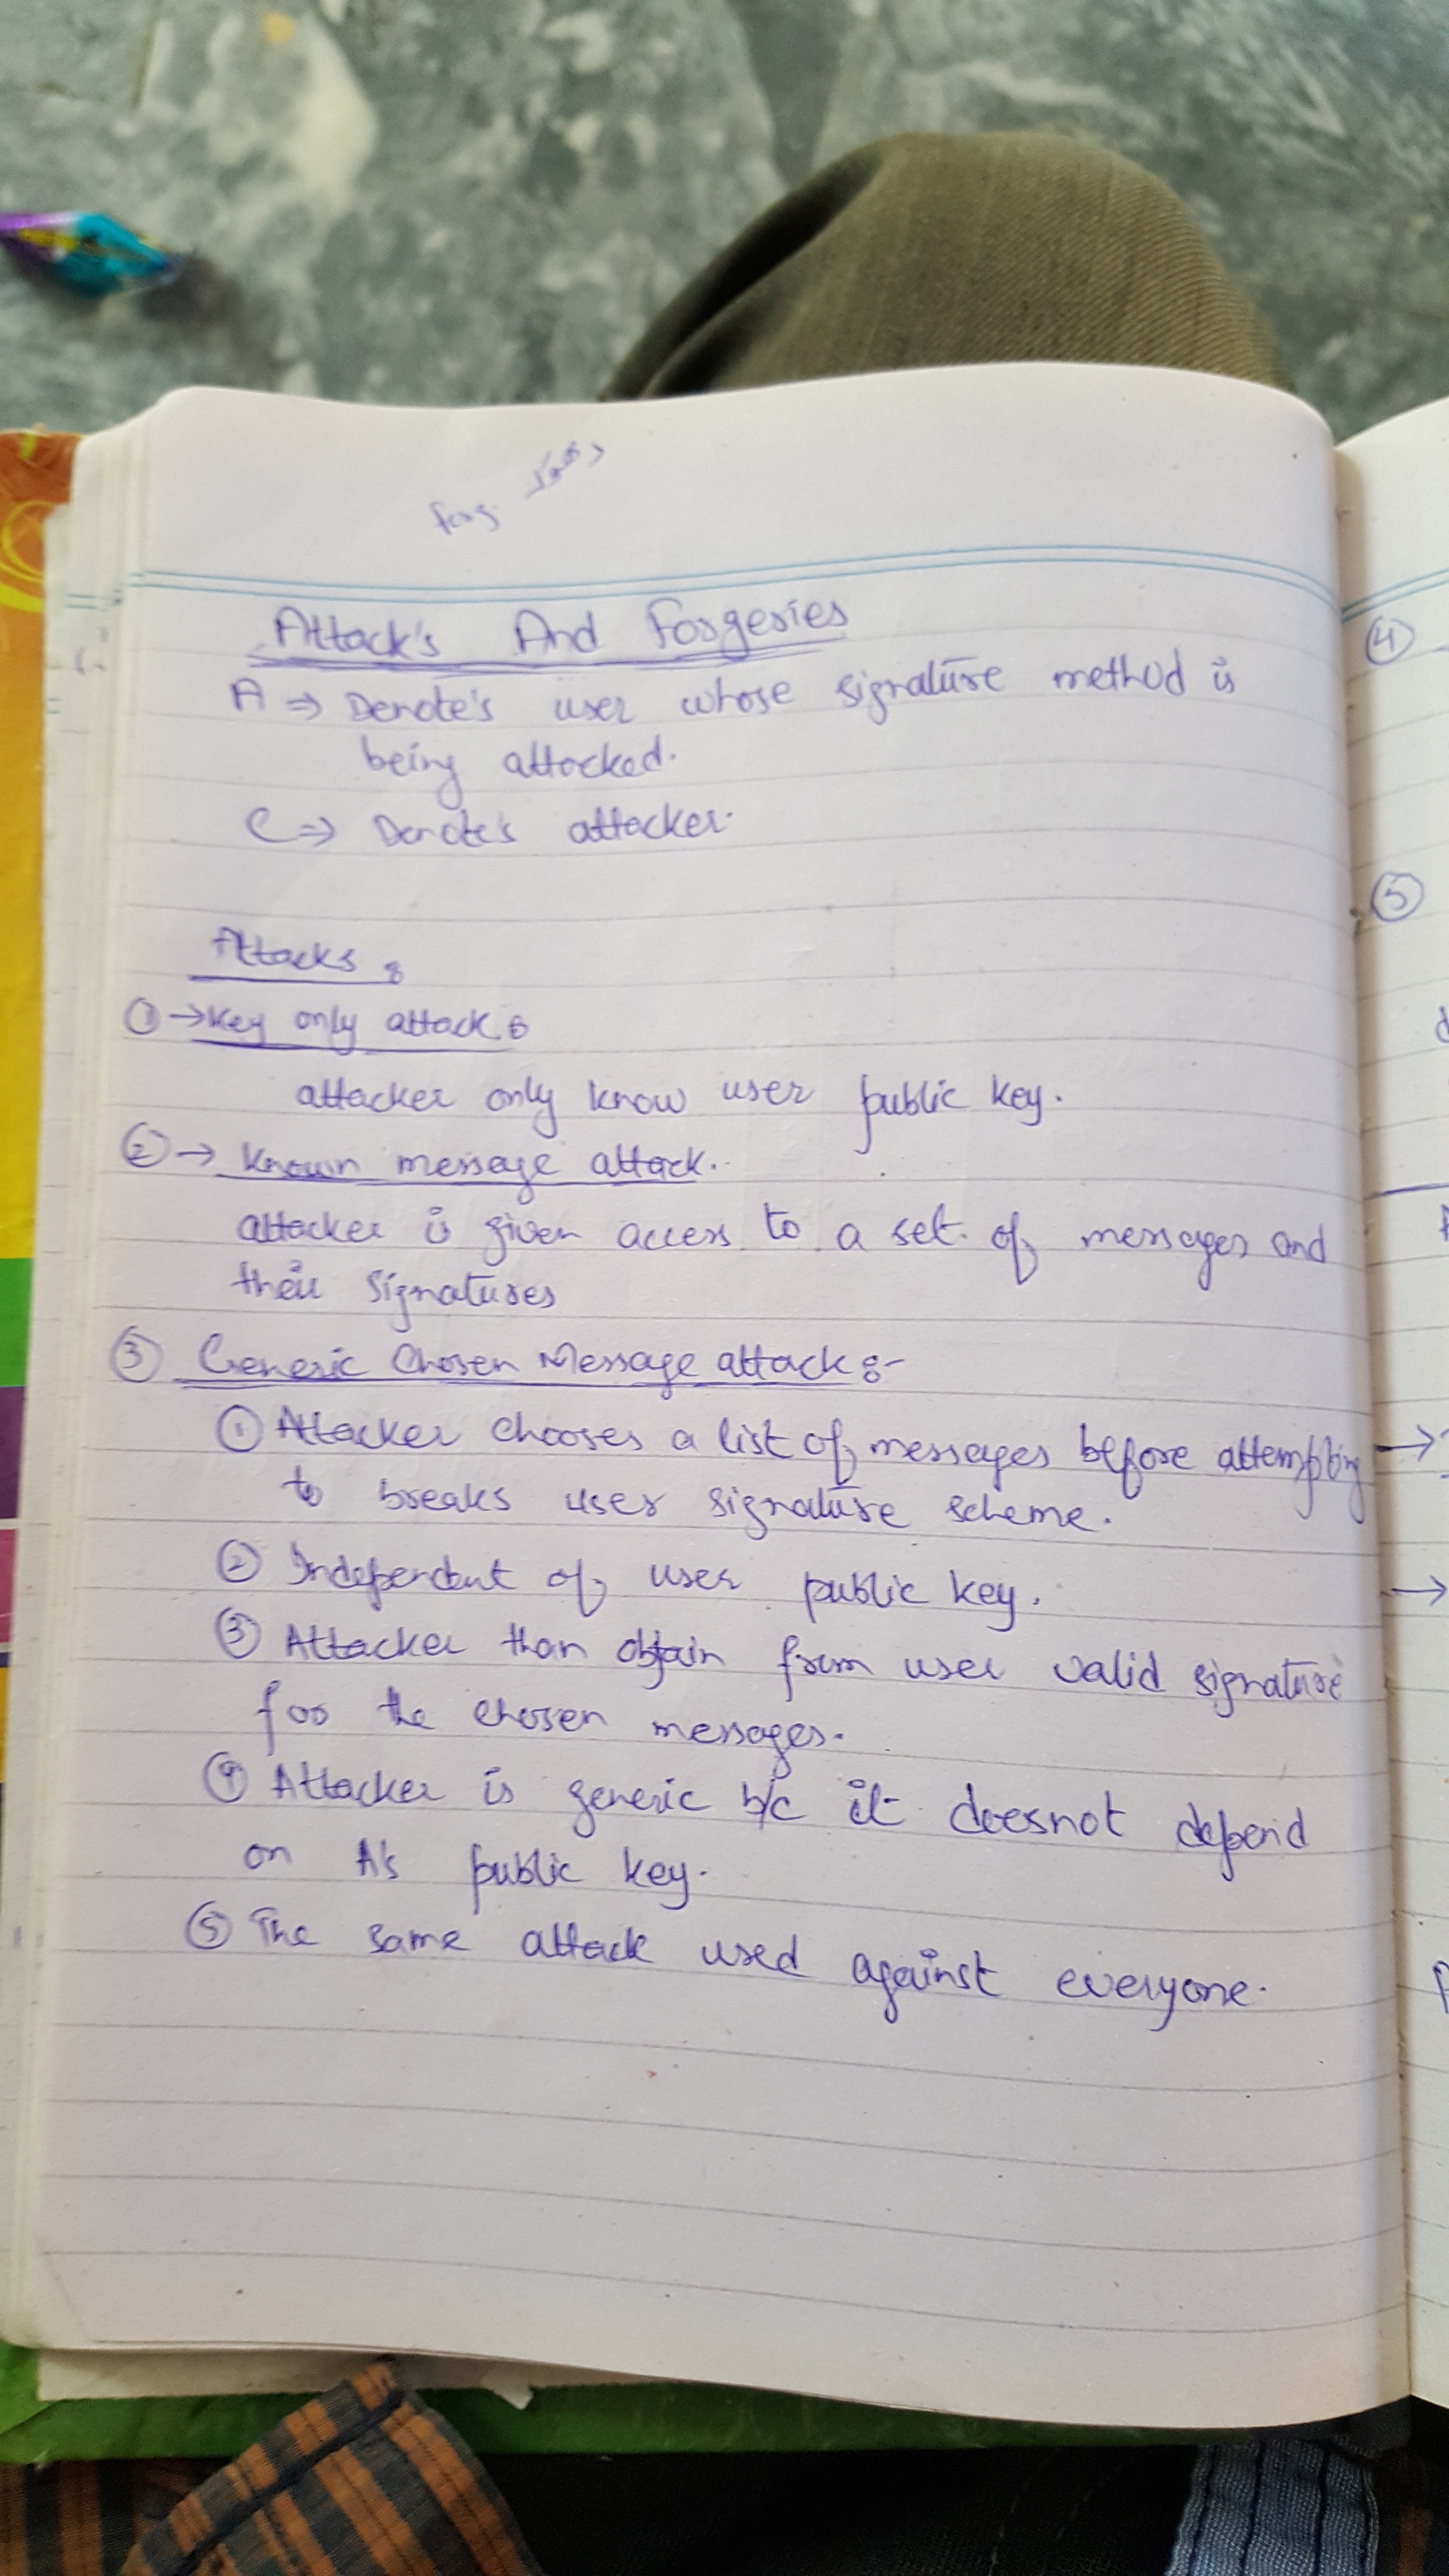 Attack's And Forgeries
A ⇒ Denote's user whose signature method is
being attacked.
C ⇒ Denote's attacker.
Attacks :
① → Key only attack :
attacker only know user public key.
② → Known message attack.
attacker is given access to a set of messages and
their signatures
③ Generic Chosen Message attack :-
① Attacker chooses a list of messages before attempting
to breaks user signature scheme.
② Independent of user public key.
③ Attacker than obtain from user valid signature
for the chosen messages.
④ Attacker is generic b/c it doesnot depend
on A's public key.
⑤ The same attack used against everyone.
④
⑤